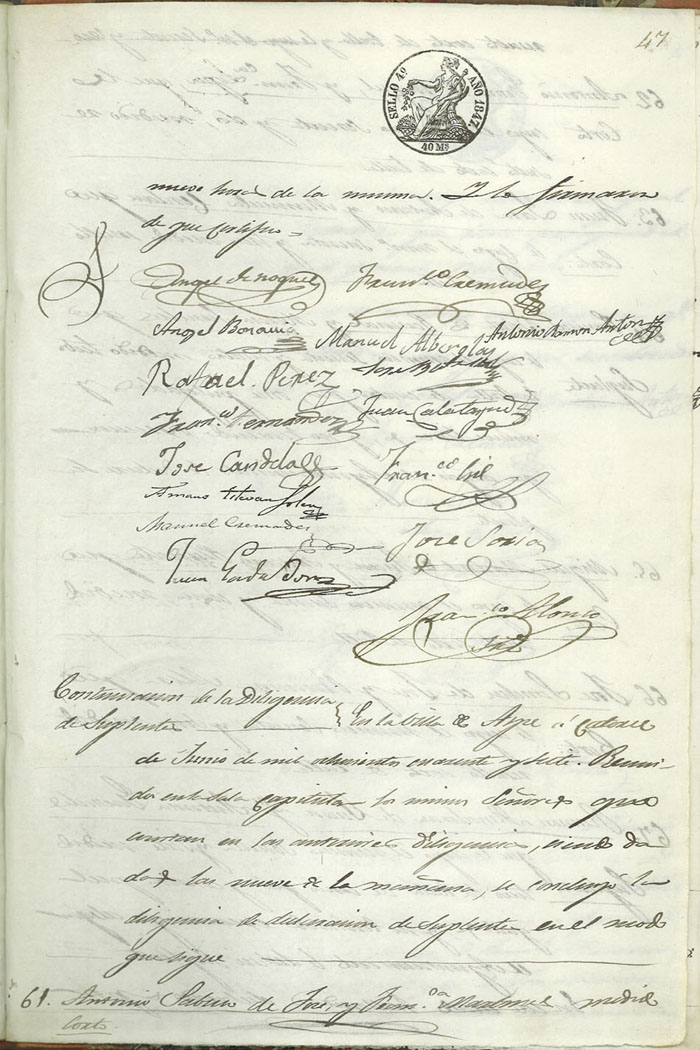 47
SELLO 4º AÑO 1847.
40 Ms
nueve horas de la misma. Y lo firmaron
de que certifico
Angel de Noguel Fran.co Cremades
Angel Manuel Alberola Antonio Ramon Anton
Rafael Perez Jose
Fran.co Fernandez Juan Calatayud
Jose Candela Fran.co Gil
Amaro Estevan
Manuel Cremades
Jose Soria
Juan
Fran.co Alonso
Continuacion de la Diligencia
de Suplentes } En la villa de Aspe á catorce
de Junio de mil ochocientos cuarenta y siete. Reuni-
dos en la Sala Capitular los mismos Señores que
constan en las anteriores diligencias, siendo da
das las nueve de la mañana, se continuó la
diligencia de declaracion de Suplentes en el modo
que sigue
61. Antonio de José, y Fran.ca Martinez midió
Corto